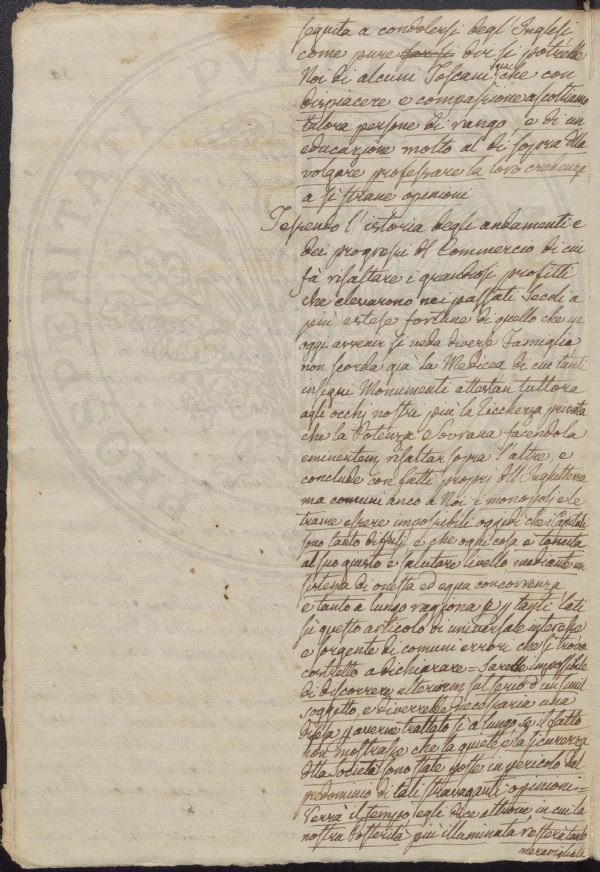 seguita a condolersi degl'Inglesi
come pure far si dir si potrebbe
Noi di alcuni Toscani qui che con
dispiacere e compassione ascoltiamo
talora persone di rango, e di un
educazione molto al di sopra della
volgare professare la loro credenza
a sì strane opinioni
Tessendo l'istoria degli andamenti e
dei progressi del Commercio di cui
fà risaltare i grandiosi profitti
che elevarono nei passati Secoli a
più estese fortune di quello che in
oggi avvenir si veda diverse Famiglie
non scorda già la Medicea di cui tanti
insigni Monumenti attestan tuttora
agli occhj nostri più la Ricchezza privata
che la Potenza Sovrana facendola
eminentem. risaltar sopra l'altre, e
conclude con fatti proprj dell'Inghilterra
ma comuni anco a Noi i monopolj e le
trame essere impossibili oggidì che i Capitali
sono tanto diffusi e che ogni cosa è tenuta
al suo giusto e salutare livello mediante un
sistema di onesta ed equa concorrenza
e tanto a lungo ragiona p. tanti lati
sù questo articolo di universale interesse
e sorgente di comuni errori che si trova
costretto a dichiarare = Sarebbe impossibile
di discorrere ulteriorm. sul serio d'un simil
soggetto, e diverrebbe necessaria una
scusa p. averne trattato sì a lungo se il fatto
non mostrasse che la quiete e la sicurezza
della Società sono state poste in pericolo dal
predominio di tali stravaganti opinioni =
Verrà il tempo egli dice altrove, in cui la
nostra Posterità più illuminata, resterà tanto
meravigliata